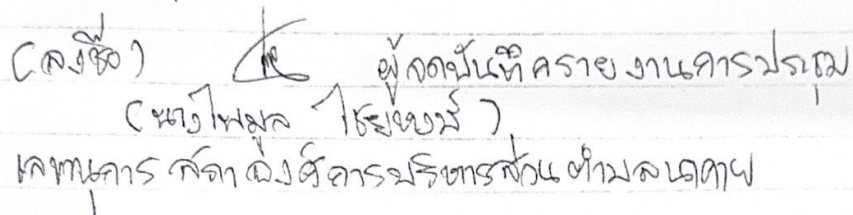 (ลงชื่อ) ผู้จดบันทึกรายงานการประชุม
(นางไพมูล ไชยหงษ์)
เลขานุการสภาองค์การบริหารส่วนตำบลนาคาย